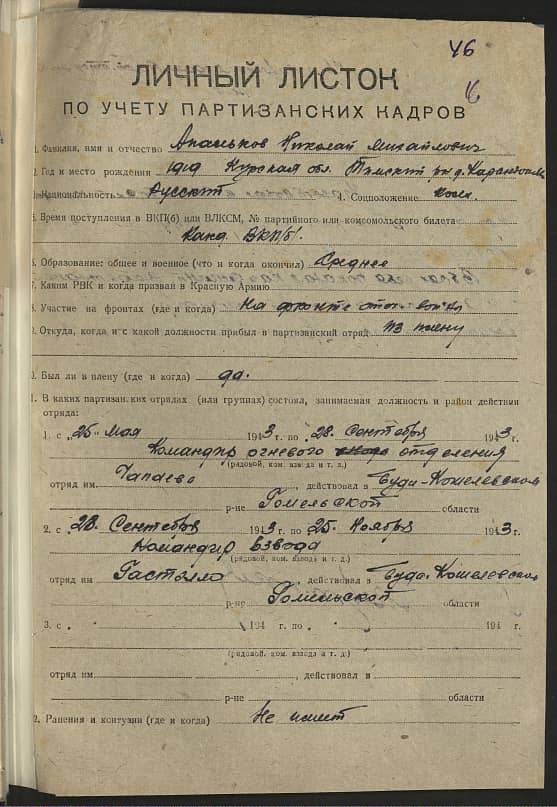 46
6
ЛИЧНЫЙ ЛИСТОК
ПО УЧЕТУ ПАРТИЗАНСКИХ КАДРОВ
1. Фамилия, имя и отчество Апальков Николай Михайлович
2. Год и место рождения 1919 Курская обл. Тимский рн д.
3. Национальность Русский 4. Соцположение
5. Время поступления в ВКП(б) или ВЛКСМ, № партийного или комсомольского билета
Канд. ВКП/б/.
6. Образование: общее и военное (что и когда окончил) Среднее
7. Каким РВК и когда призван в Красную Армию
8. Участие на фронтах (где и когда) На фронте отеч. войны
9. Откуда, когда и с какой должности прибыл в партизанский отряд из плену
0. Был ли в плену (где и когда) да.
1. В каких партизанских отрядах (или группах) состоял, занимаемая должность и район действия
отряда:
1. с „25„ Мая 1943 г. по „28. Сентября 1943 г.
Командир огневого отделения
(рядовой, ком. взвода и т. д.)
отряд им. Чапаева, действовал в Буда-Кошелевском
р-не Гомельской области
2. с „28. Сентября 1943 г. по „25. Ноября 1943 г.
Командир взвода
(рядовой, ком. взвода и т. д.)
отряд им Гастелло, действовал в Буда-Кошелевском
р-не Гомельской области
3. с 194 г. по 194 г.
(рядовой, ком. взвода и т. д.)
отряд им., действовал в
р-не области
2. Ранения и контузии (где и когда) Не имеет